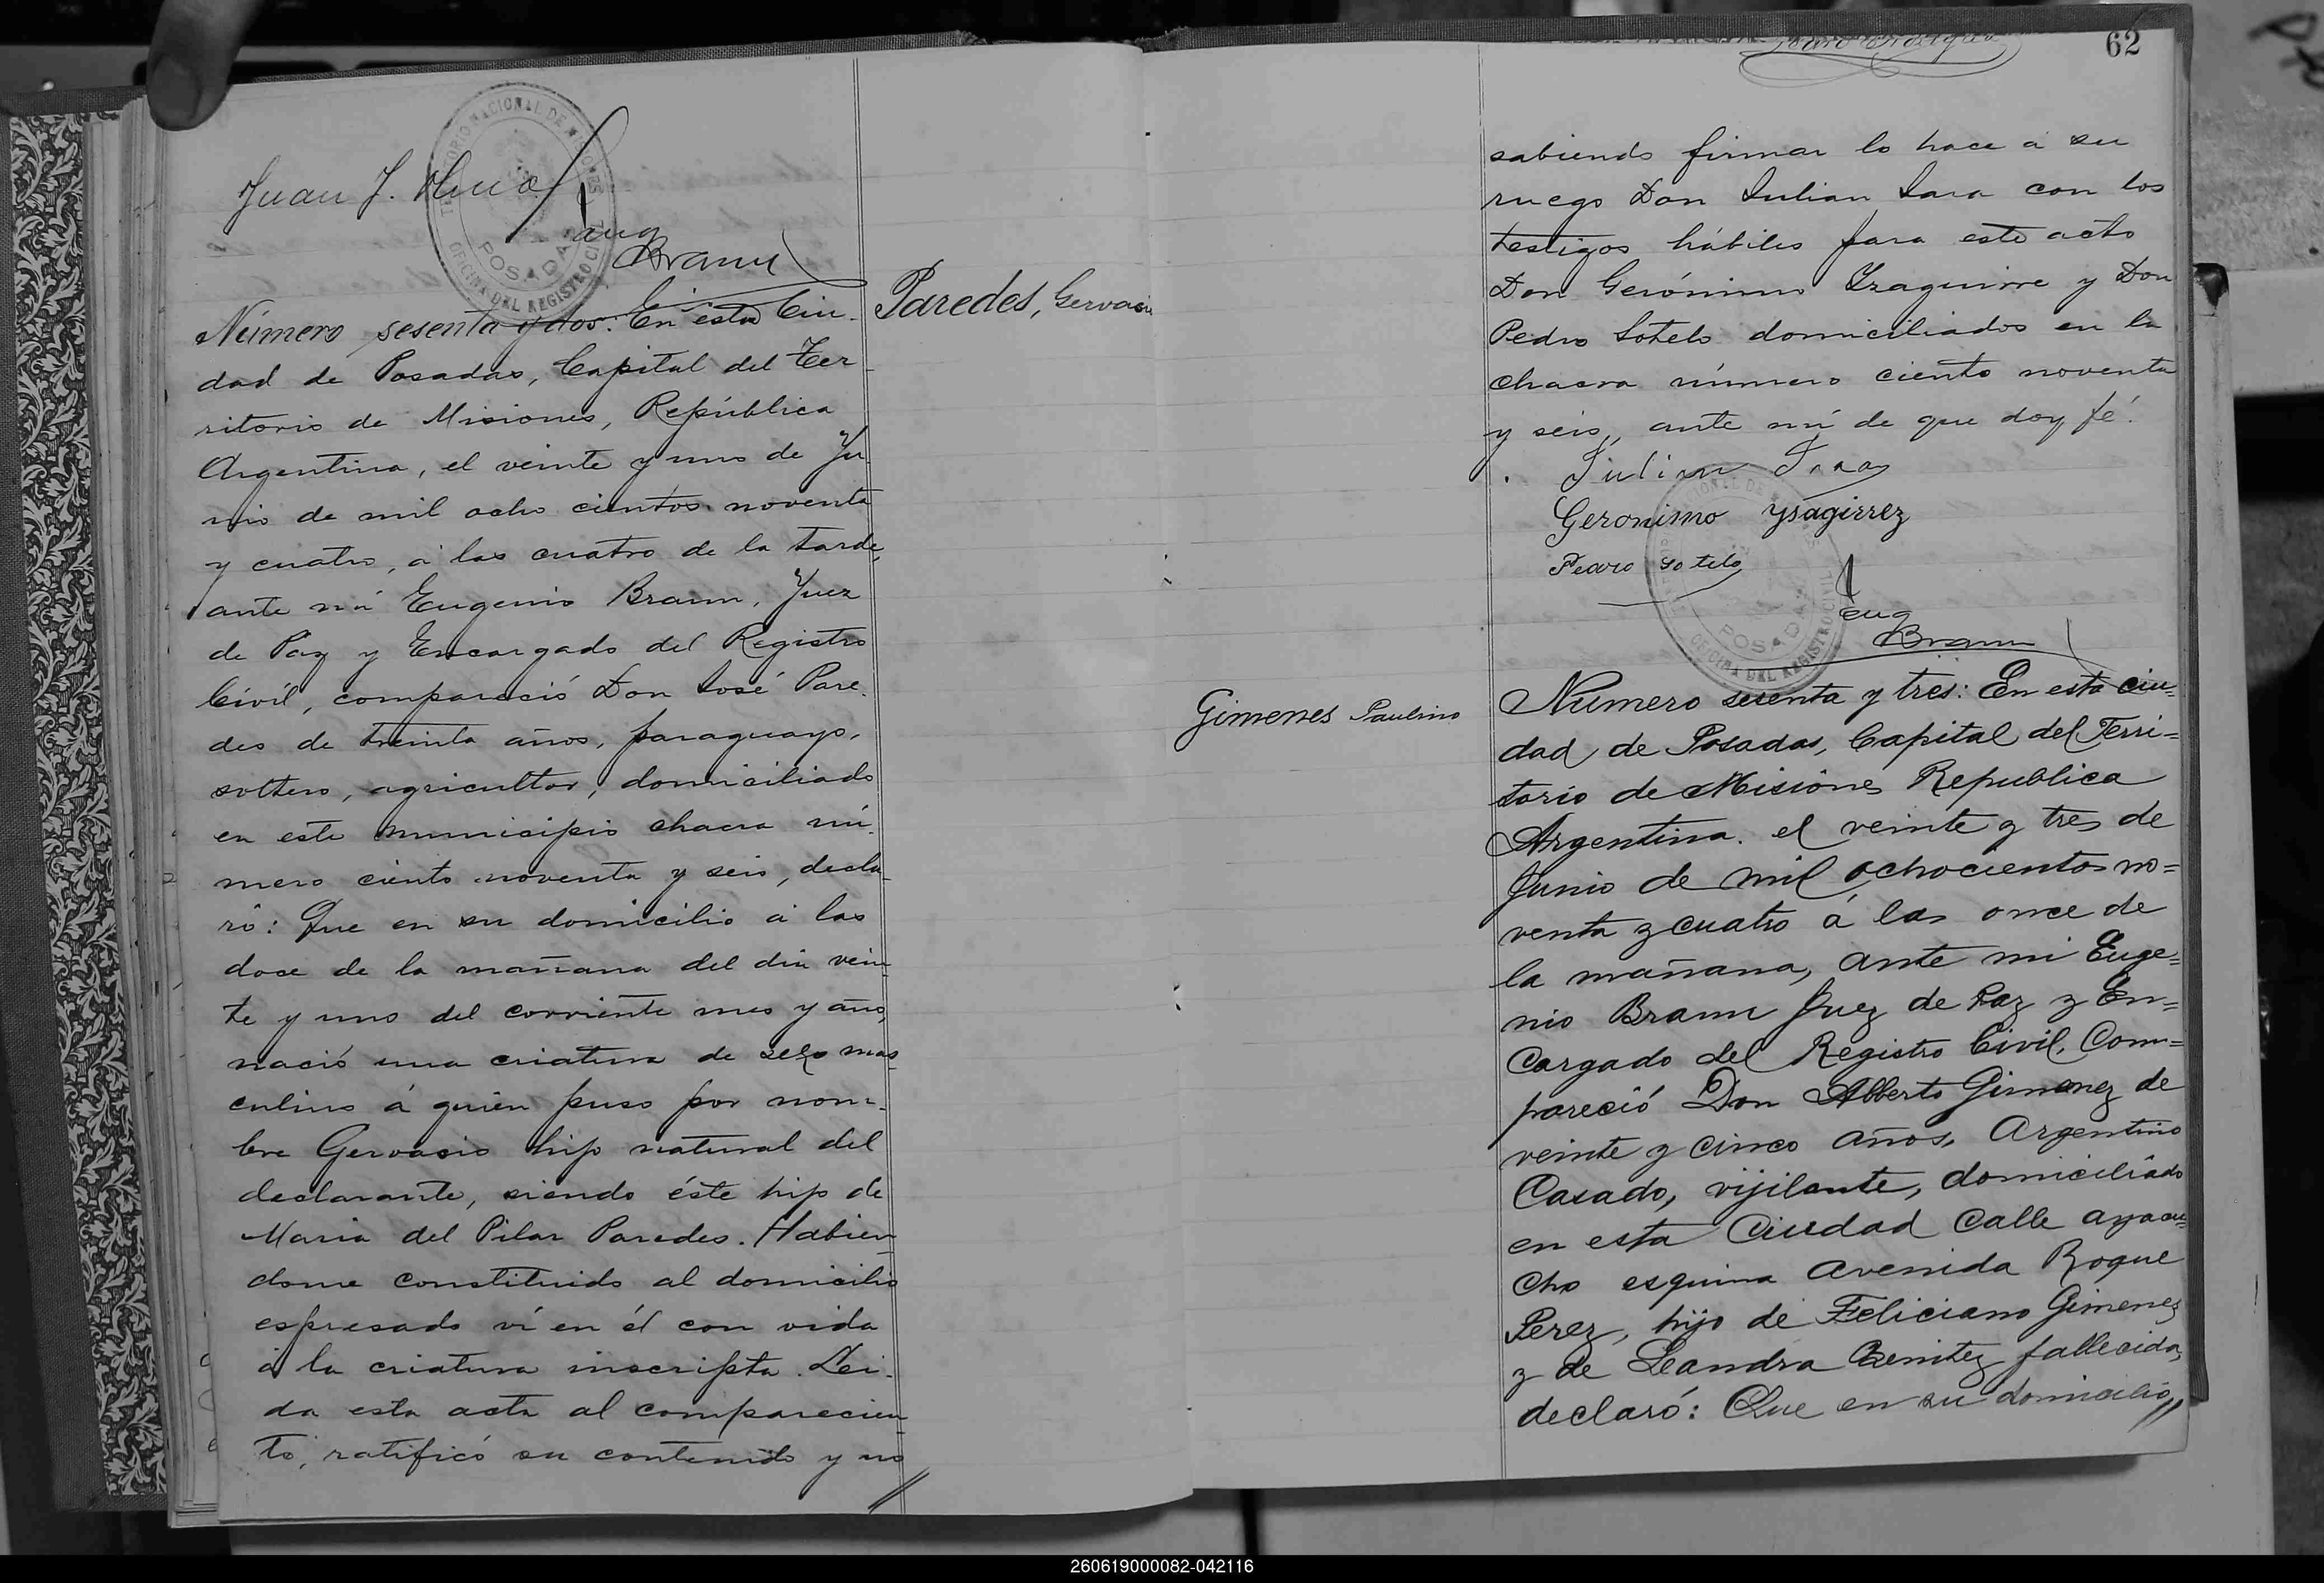 Juan J.
Eug
Braun
Número sesenta y dos: En esta Ciu-
Paredes, Gervasio
dad de Posadas, Capital del Ter
ritorio de Misiones, República
Argentina, el veinte y uno de Ju
nio de mil ocho cientos noventa
y cuatro, á las cuatro de la tarde,
ante mí Eugenio Braun, Juez
de Paz y Encargado del Registro
Civil, compareció Don José Pare-
des de treinta años, paraguayo,
soltero, agricultor, domiciliado
en este municipio chacra nú-
mero ciento noventa y seis, decla-
ró: Que en su domicilio á las
doce de la mañana del dia vein-
te y uno del corriente mes y año,
nació una criatura de sexo mas-
culino á quien puso por nom-
bre Gervasio hijo natural del
declarante, siendo éste hijo de
Maria del Pilar Paredes. Habien-
dome constituido al domicilio
espresado ví en él con vida
á la criatura inscripta. Lei-
da esta acta al comparecien-
te, ratificó su contenido y no
62
sabiendo firmar lo hace á su
ruego Don Julian Jara con los
testigos hábiles para este acto
Don Gerónimo Yraguirre y Don
Pedro Sotelo domiciliados en la
chacra número ciento noventa
y seis, ante mí de que doy fé.
Julian Jara
Geronimo Ysagirrez
Pedro Sotelo
Eug
Braun
Gimenes Paulino
Número sesenta y tres: En esta ciu=
dad de Posadas, Capital del Terri=
torio de Misiones Republica
Argentina. el veinte y tres de
Junio de mil ochocientos no=
venta y cuatro á las once de
la mañana, ante mi Euge=
nio Braun Juez de Paz y En=
cargado del Registro Civil, Com=
pareció Don Alberto Gimenez de
veinte y cinco años, Argentino
Casado, vijilante, domiciliado
en esta Ciudad Calle ayacu=
cho esquina Avenida Roque
Perez, hijo de Feliciano Gimenez
y de Leandra Benitez fallecida,
declaró: Que en su domicilio,
TERRITORIO NACIONAL DE MISIONES
POSADAS
OFICINA DEL REGISTRO CIVIL
260619000082-042116